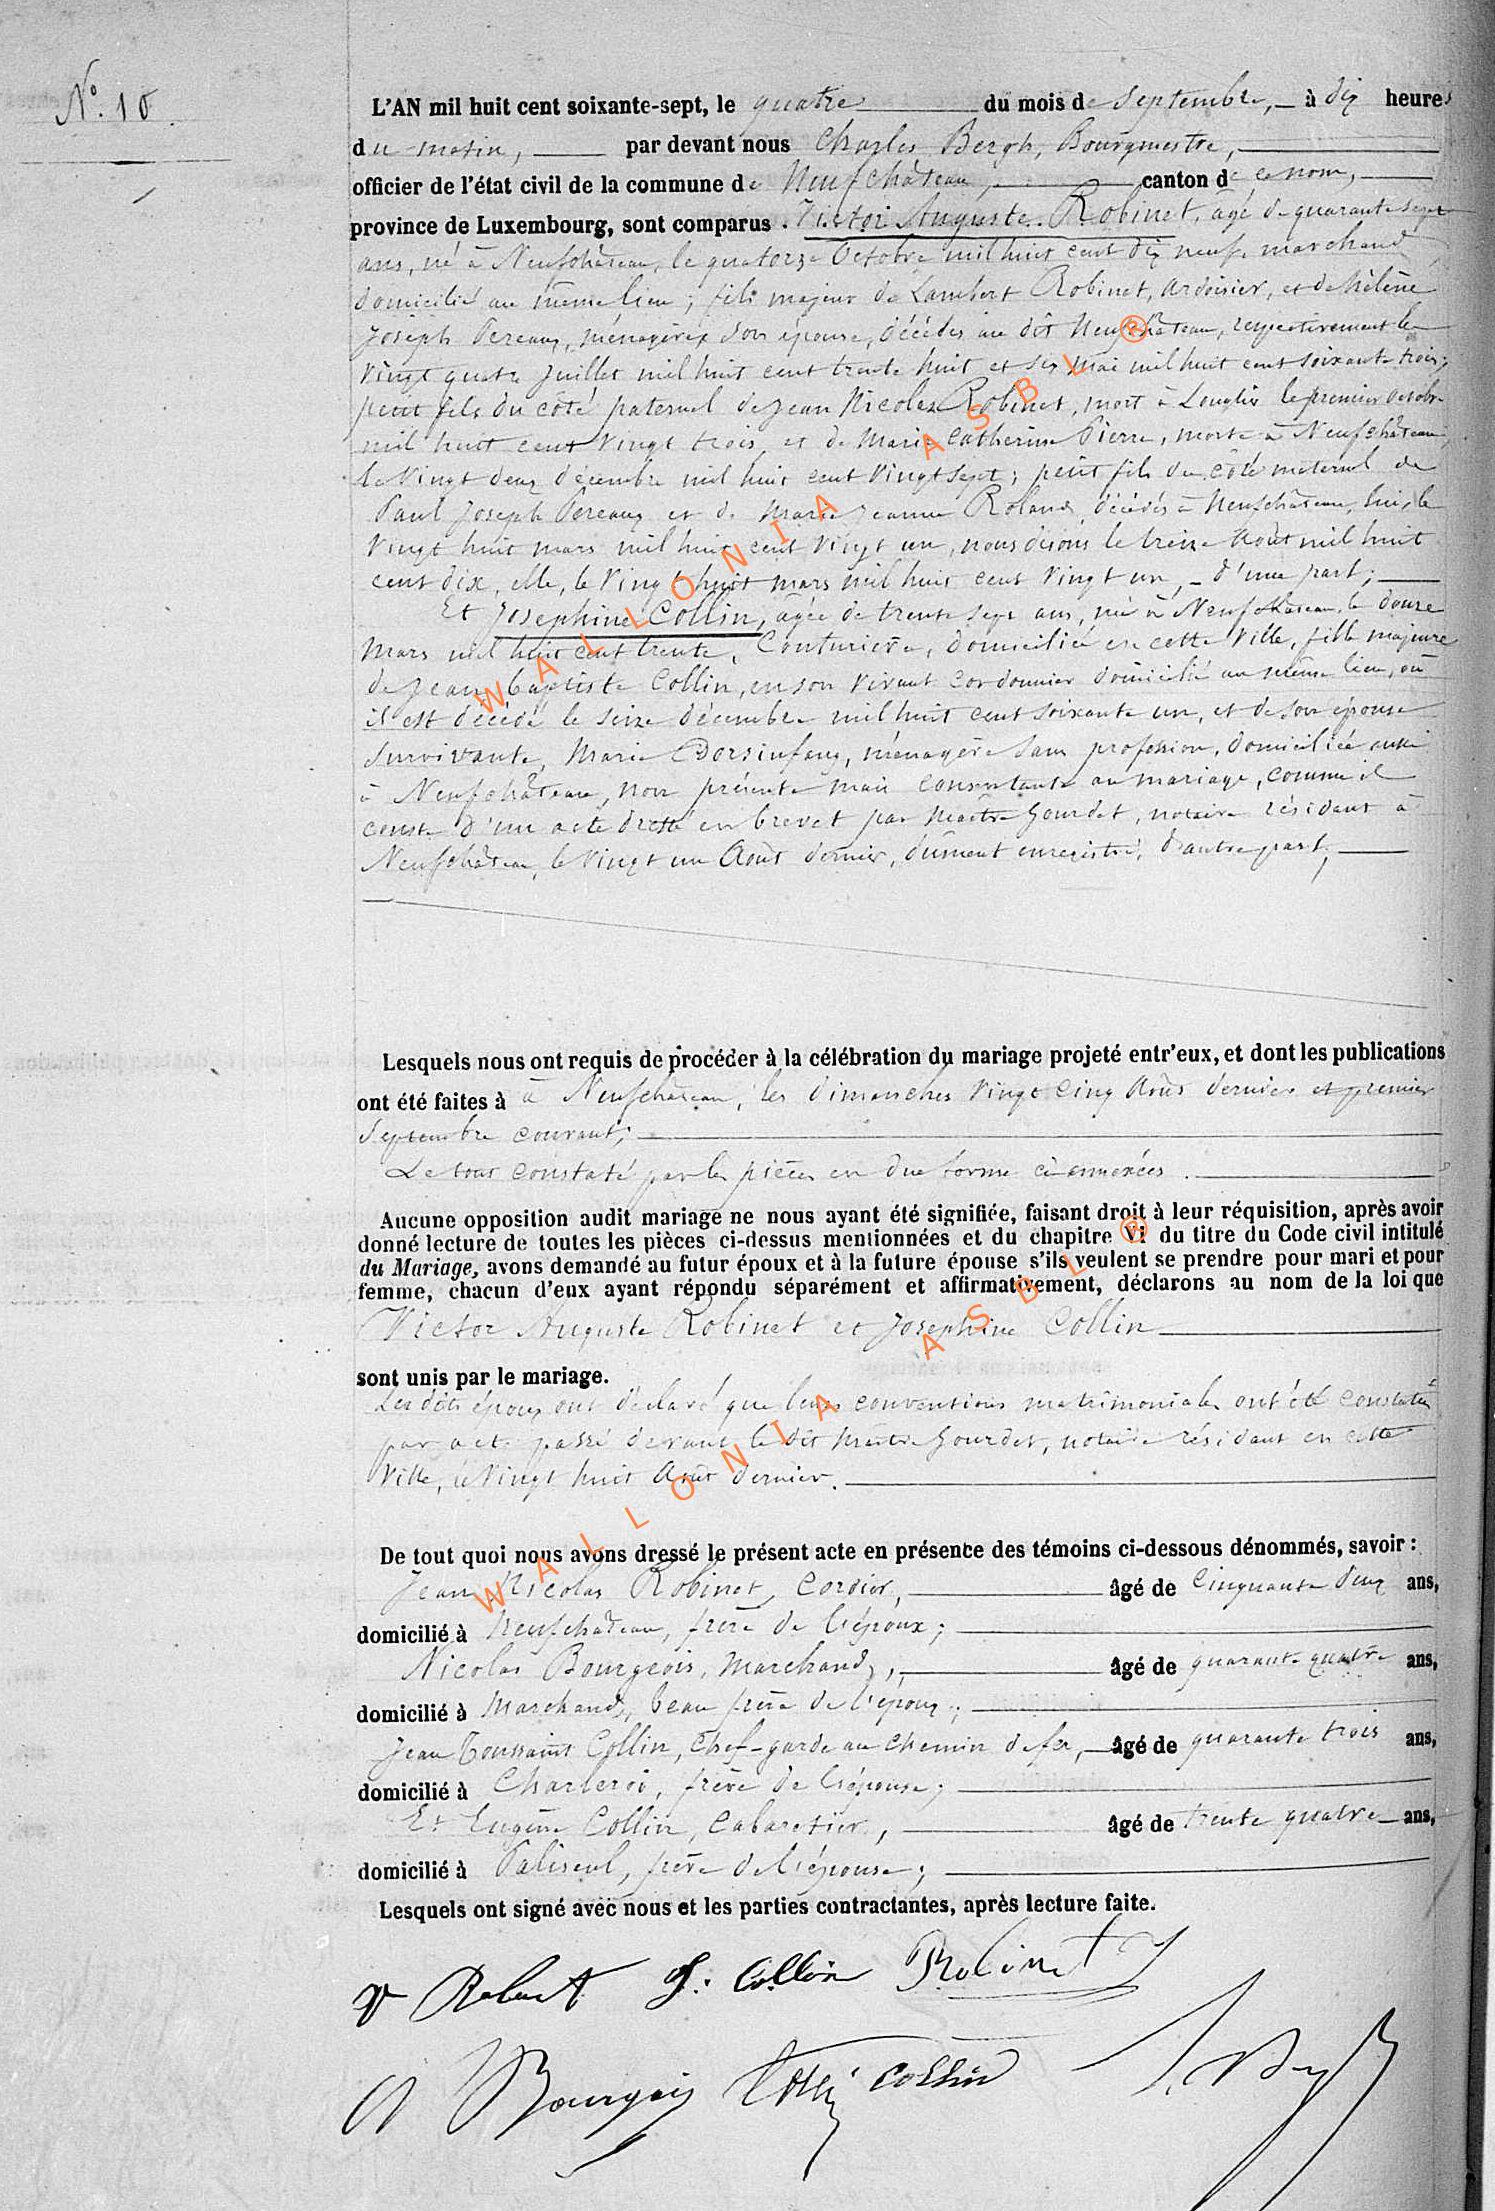 N° 10
L'AN mil huit cent soixante-sept, le quatre du mois de Septembre, à dix heures
du matin, par devant nous Charles Bergh, Bourgmestre,
officier de l'état civil de la commune de Neufchâteau, canton de ce nom,
province de Luxembourg, sont comparus Victor Auguste Robinet, âgé de quarante sept
ans, né à Neufchâteau, le quatorze Octobre mil huit cent dix neuf, marchand
domicilié au même lieu ; fils majeur de Lambert Robinet, ardoisier, et de Hélène
Joseph Pereaux, ménagère son épouse, décédés au dit Neufchâteau, respectivement le
vingt quatre Juillet mil huit cent trente huit et six mai mil huit cent soixante trois ;
petit fils du côté paternel de Jean Nicolas Robinet, mort à Longlier le premier octobre
mil huit cent vingt trois, et de Marie Catherine Pierre, morte à Neufchâteau,
le vingt deux décembre mil huit cent vingt sept ; petit fils du côté maternel de
Paul Joseph Pereaux et de Marie Jeanne Roland, décédés à Neufchâteau, lui, le
vingt huit mars mil huit cent vingt un, nous disons le treize Août mil huit
cent dix, elle, le vingt huit mars mil huit cent vingt un, - d'une part ;
Et Josephine Collin, âgée de trente sept ans, née à Neufchâteau, le douze
Mars mil huit cent trente, Couturière, domiciliée en cette ville, fille majeure
de Jean Baptiste Collin, en son vivant cordonnier domicilié au même lieu, où
il est décédé le seize décembre mil huit cent soixante un, et de son épouse
survivante, Marie Dorsinfang, ménagère sans profession, domiciliée aussi
à Neufchâteau, non présente mais consentante au mariage, comme il
conste d'un acte dressé en brevet par Maître Gourdet, notaire résidant à
Neufchâteau, le vingt un Août dernier, dûment enregistré, d'autre part,
Lesquels nous ont requis de procéder à la célébration du mariage projeté entr'eux, et dont les publications
ont été faites à à Neufchâteau, les dimanches vingt cinq Août dernier et premier
Septembre courant ;
Le tout constaté par les pièces en due forme ci-annexées.
Aucune opposition audit mariage ne nous ayant été signifiée, faisant droit à leur réquisition, après avoir
donné lecture de toutes les pièces ci-dessus mentionnées et du chapitre VI du titre du Code civil intitulé
du Mariage, avons demandé au futur époux et à la future épouse s'ils veulent se prendre pour mari et pour
femme, chacun d'eux ayant répondu séparément et affirmativement, déclarons au nom de la loi que
Victor Auguste Robinet et Josephine Collin
sont unis par le mariage.
Les dits époux ont déclaré que leurs conventions matrimoniales ont été constatées
par acte passé devant le dit Maître Gourdet, notaire résidant en cette
ville, le vingt huit Août dernier.
De tout quoi nous avons dressé le présent acte en présence des témoins ci-dessous dénommés, savoir :
Jean Nicolas Robinet, Cordier, âgé de cinquante deux ans,
domicilié à Neufchâteau, frère de l'époux ;
Nicolas Bourgeois, marchand, âgé de quarante quatre ans,
domicilié à Marchand, beau frère de l'époux ;
Jean Toussaint Collin, Chef-garde au chemin de fer, âgé de quarante trois ans,
domicilié à Charleroi, frère de l'épouse ;
Et Eugène Collin, Cabaretier, âgé de trente quatre ans,
domicilié à Paliseul, frère de l'épouse ;
Lesquels ont signé avec nous et les parties contractantes, après lecture faite.
V Robinet J. Collin Robinet
N Bourgeois Collin Collin
WALLONIA ASBL ®
WALLONIA ASBL ®